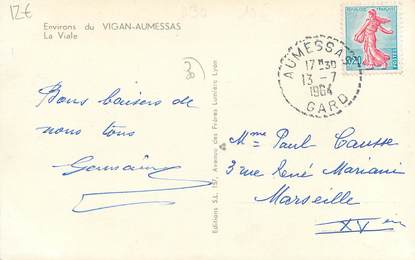 12€
Environs du VIGAN-AUMESSAS
La Viale
AUMESSAS
17H30
13-7
1964
GARD
0,20
Bons baisers de
nous tous
Germaine
Editions S.L. 157, Avenue des Frères Lumière Lyon
Mme Paul Causse
3 rue René Mariani
Marseille
XVein